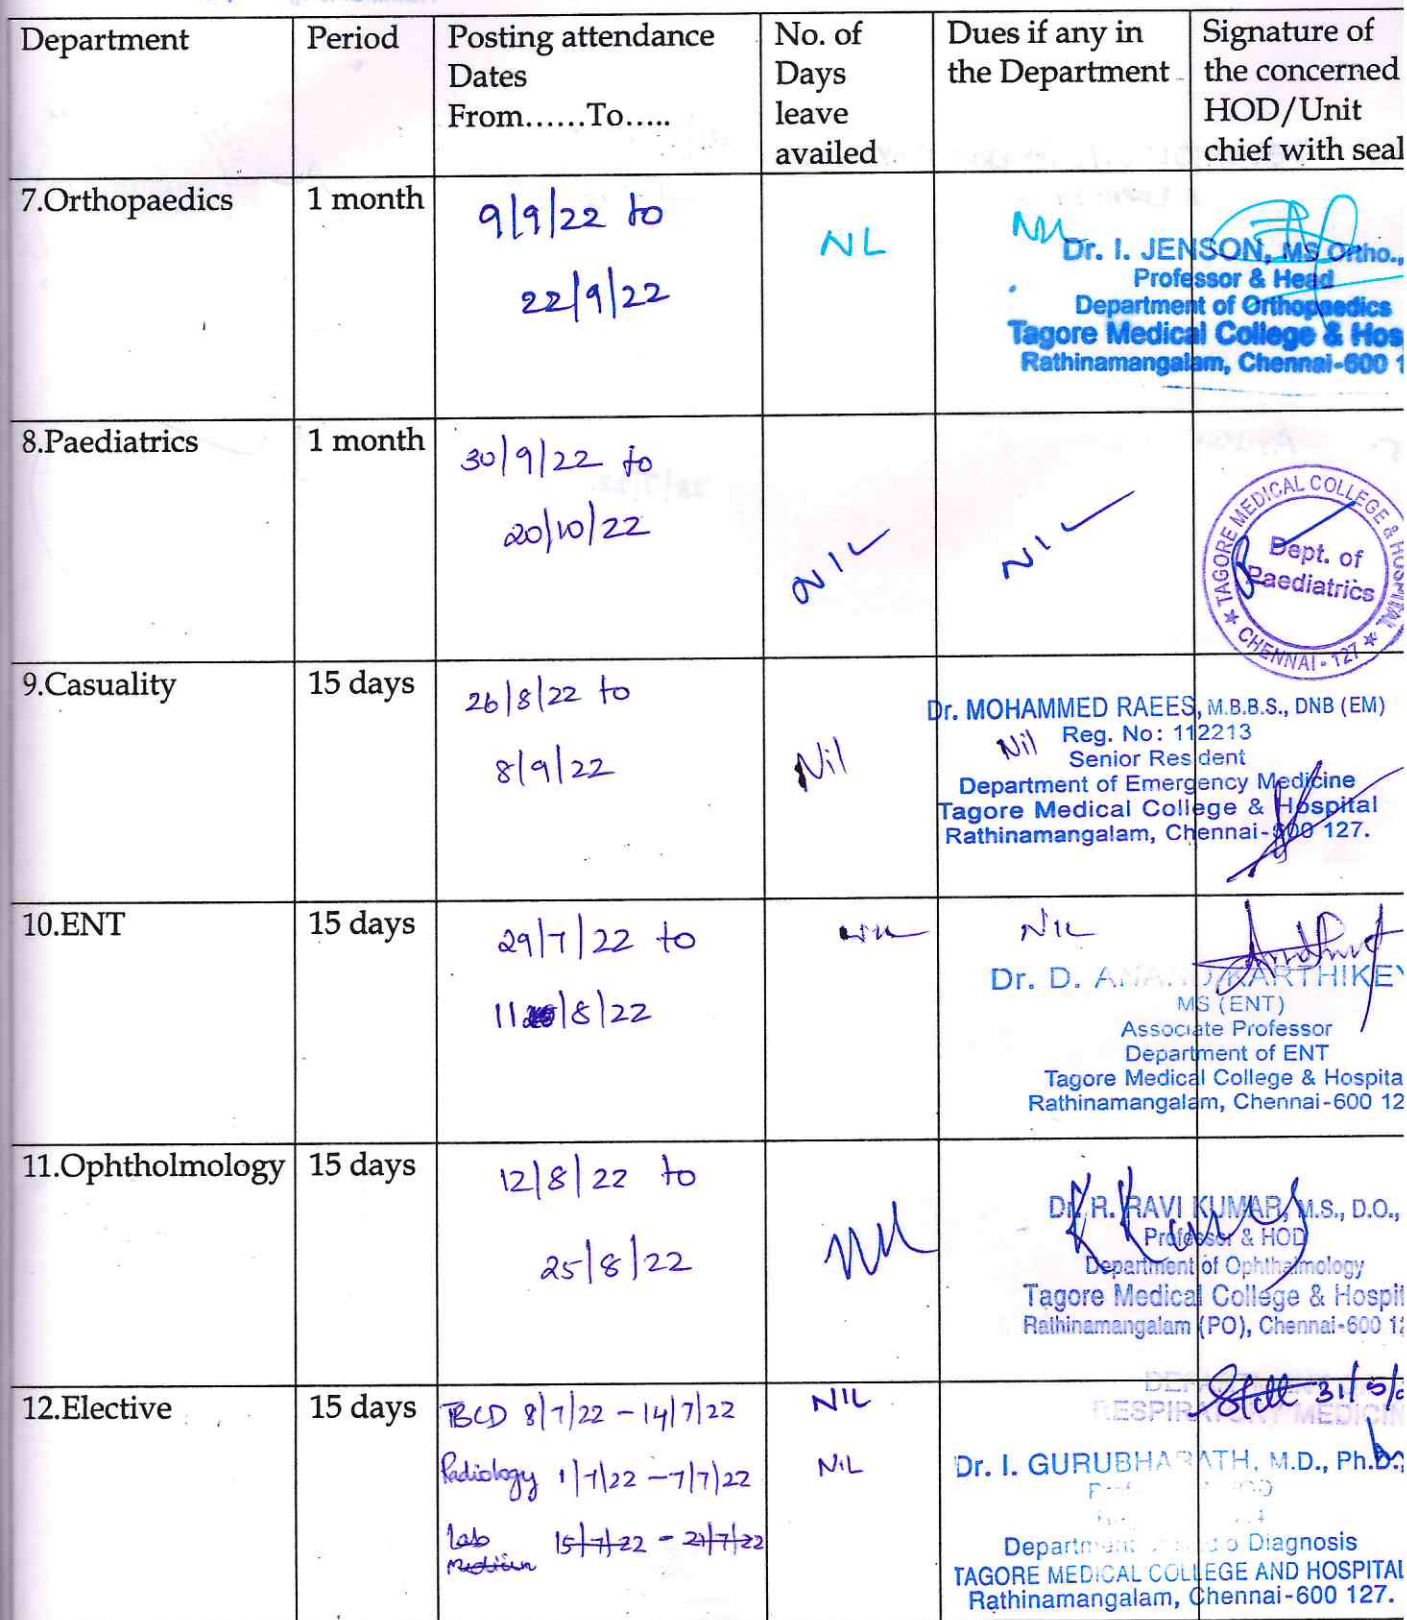 Department Period Posting attendance Dates From......To..... No. of Days leave availed Dues if any in the Department Signature of the concerned HOD/Unit chief with seal
7.Orthopaedics 1 month 9/9/22 to
22/9/22
NIL
Nil
Dr. I. JENSON, MS Ortho.,
Professor & Head
Department of Orthopaedics
Tagore Medical College & Hos
Rathinamangalam, Chennai-600 1
8.Paediatrics 1 month 30/9/22 to
20/10/22
NIL
NIL
TAGORE MEDICAL COLLEGE & HOSPITAL
Dept. of
Paediatrics
CHENNAI - 127
9.Casuality 15 days 26/8/22 to
8/9/22
Nil
Nil
Dr. MOHAMMED RAEES, M.B.B.S., DNB (EM)
Reg. No: 112213
Senior Resident
Department of Emergency Medicine
Tagore Medical College & Hospital
Rathinamangalam, Chennai-600 127.
10.ENT 15 days 29/7/22 to
11/8/22
NIL
Dr. D. KARTHIKEY
MS (ENT)
Associate Professor
Department of ENT
Tagore Medical College & Hospita
Rathinamangalam, Chennai-600 12
11.Ophtholmology 15 days 12/8/22 to
25/8/22
Nil
Dr. R. RAVI KUMAR, M.S., D.O.,
Professor & HOD
Department of Ophthalmology
Tagore Medical College & Hospit
Rathinamangalam (PO), Chennai-600 12
12.Elective 15 days TBCD 8/7/22 - 14/7/22 NIL
RESPIRATORY MEDICIN
Radiology 1/7/22 - 7/7/22 NIL
Lab Medicine 15/7/22 - 21/7/22
Dr. I. GURUBHARATH, M.D., Ph.D.,
Diagnosis
TAGORE MEDICAL COLLEGE AND HOSPITAL
Rathinamangalam, Chennai-600 127.